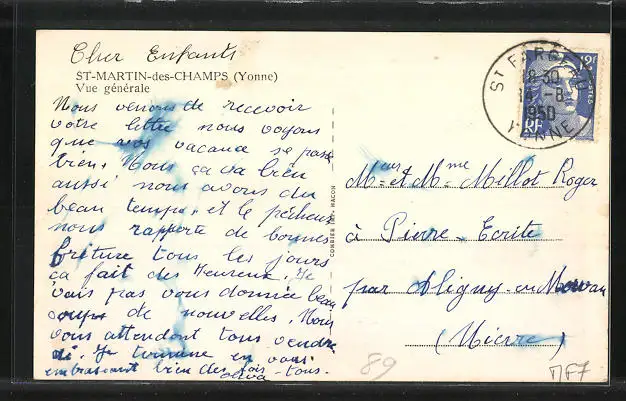 Cher Enfants
ST-MARTIN-des-CHAMPS (Yonne)
Vue générale
Nous venons de recevoir
votre lettre nous voyons
que vos vacance se passe
bien. Nous ça va bien
aussi nous avons du
beau temps. et le pécheur
nous rapporte de bonnes
friture tous les jours
ça fait des Heureux. Je
vais pas vous donnée beau
coup de nouvelles. Nous
vous attendont tous vendre
di. Je termine en vous
embrassant bien des fois
tous.
COMBIER IMP. MACON
ST FARGEAU
8-30
-8
1950
YONNE
12F
RF
Mr et Mme Millot Roger
à Pierre-Ecrite
par Alligny-en-Morvan
(Nièvre)
89
MF7